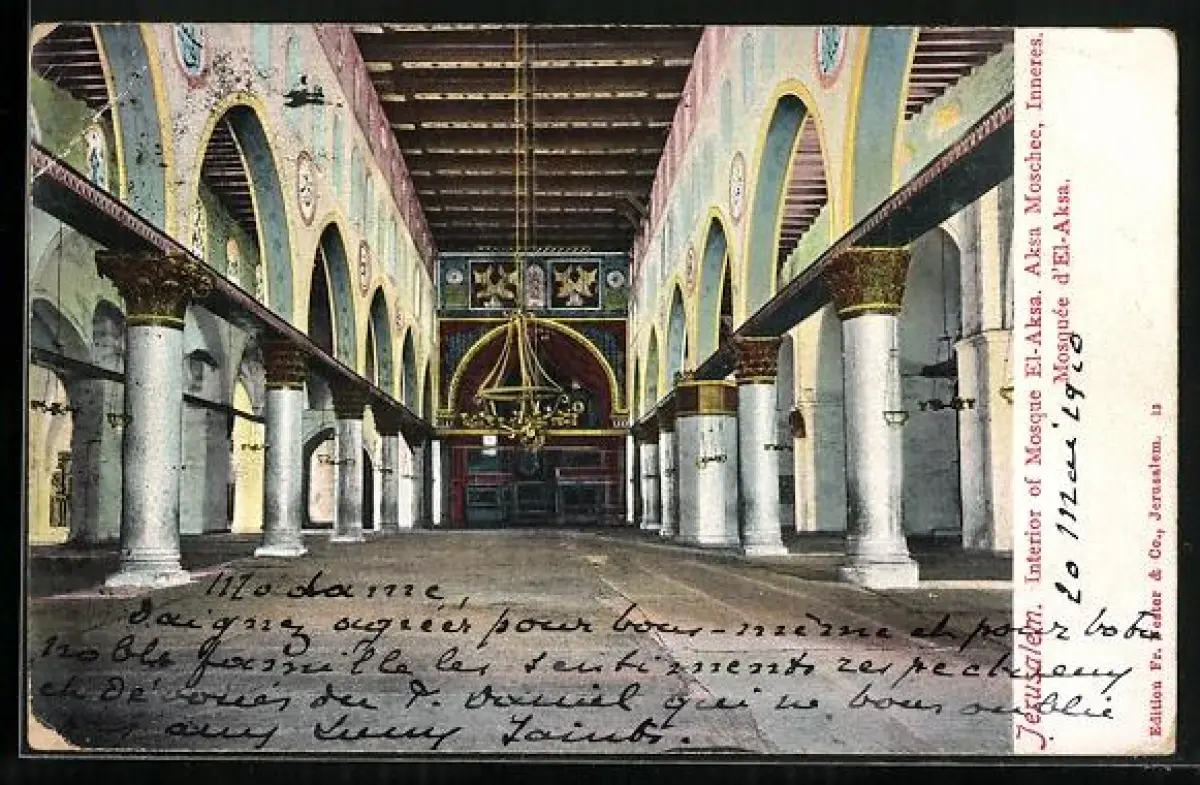 Jerusalem. Interior of Mosque El-Aksa. Aksa Moschee, Inneres.
Mosquée d'El-Aksa.
Edition Fr. & Co., Jerusalem. 13
20 Mai 1910
Madame,
Daignez agréér pour vous-même et pour votre
noble famille les sentiments respectueux
et dévoués du F. Daniel qui ne vous oublie
pas aux Lieux Saints.